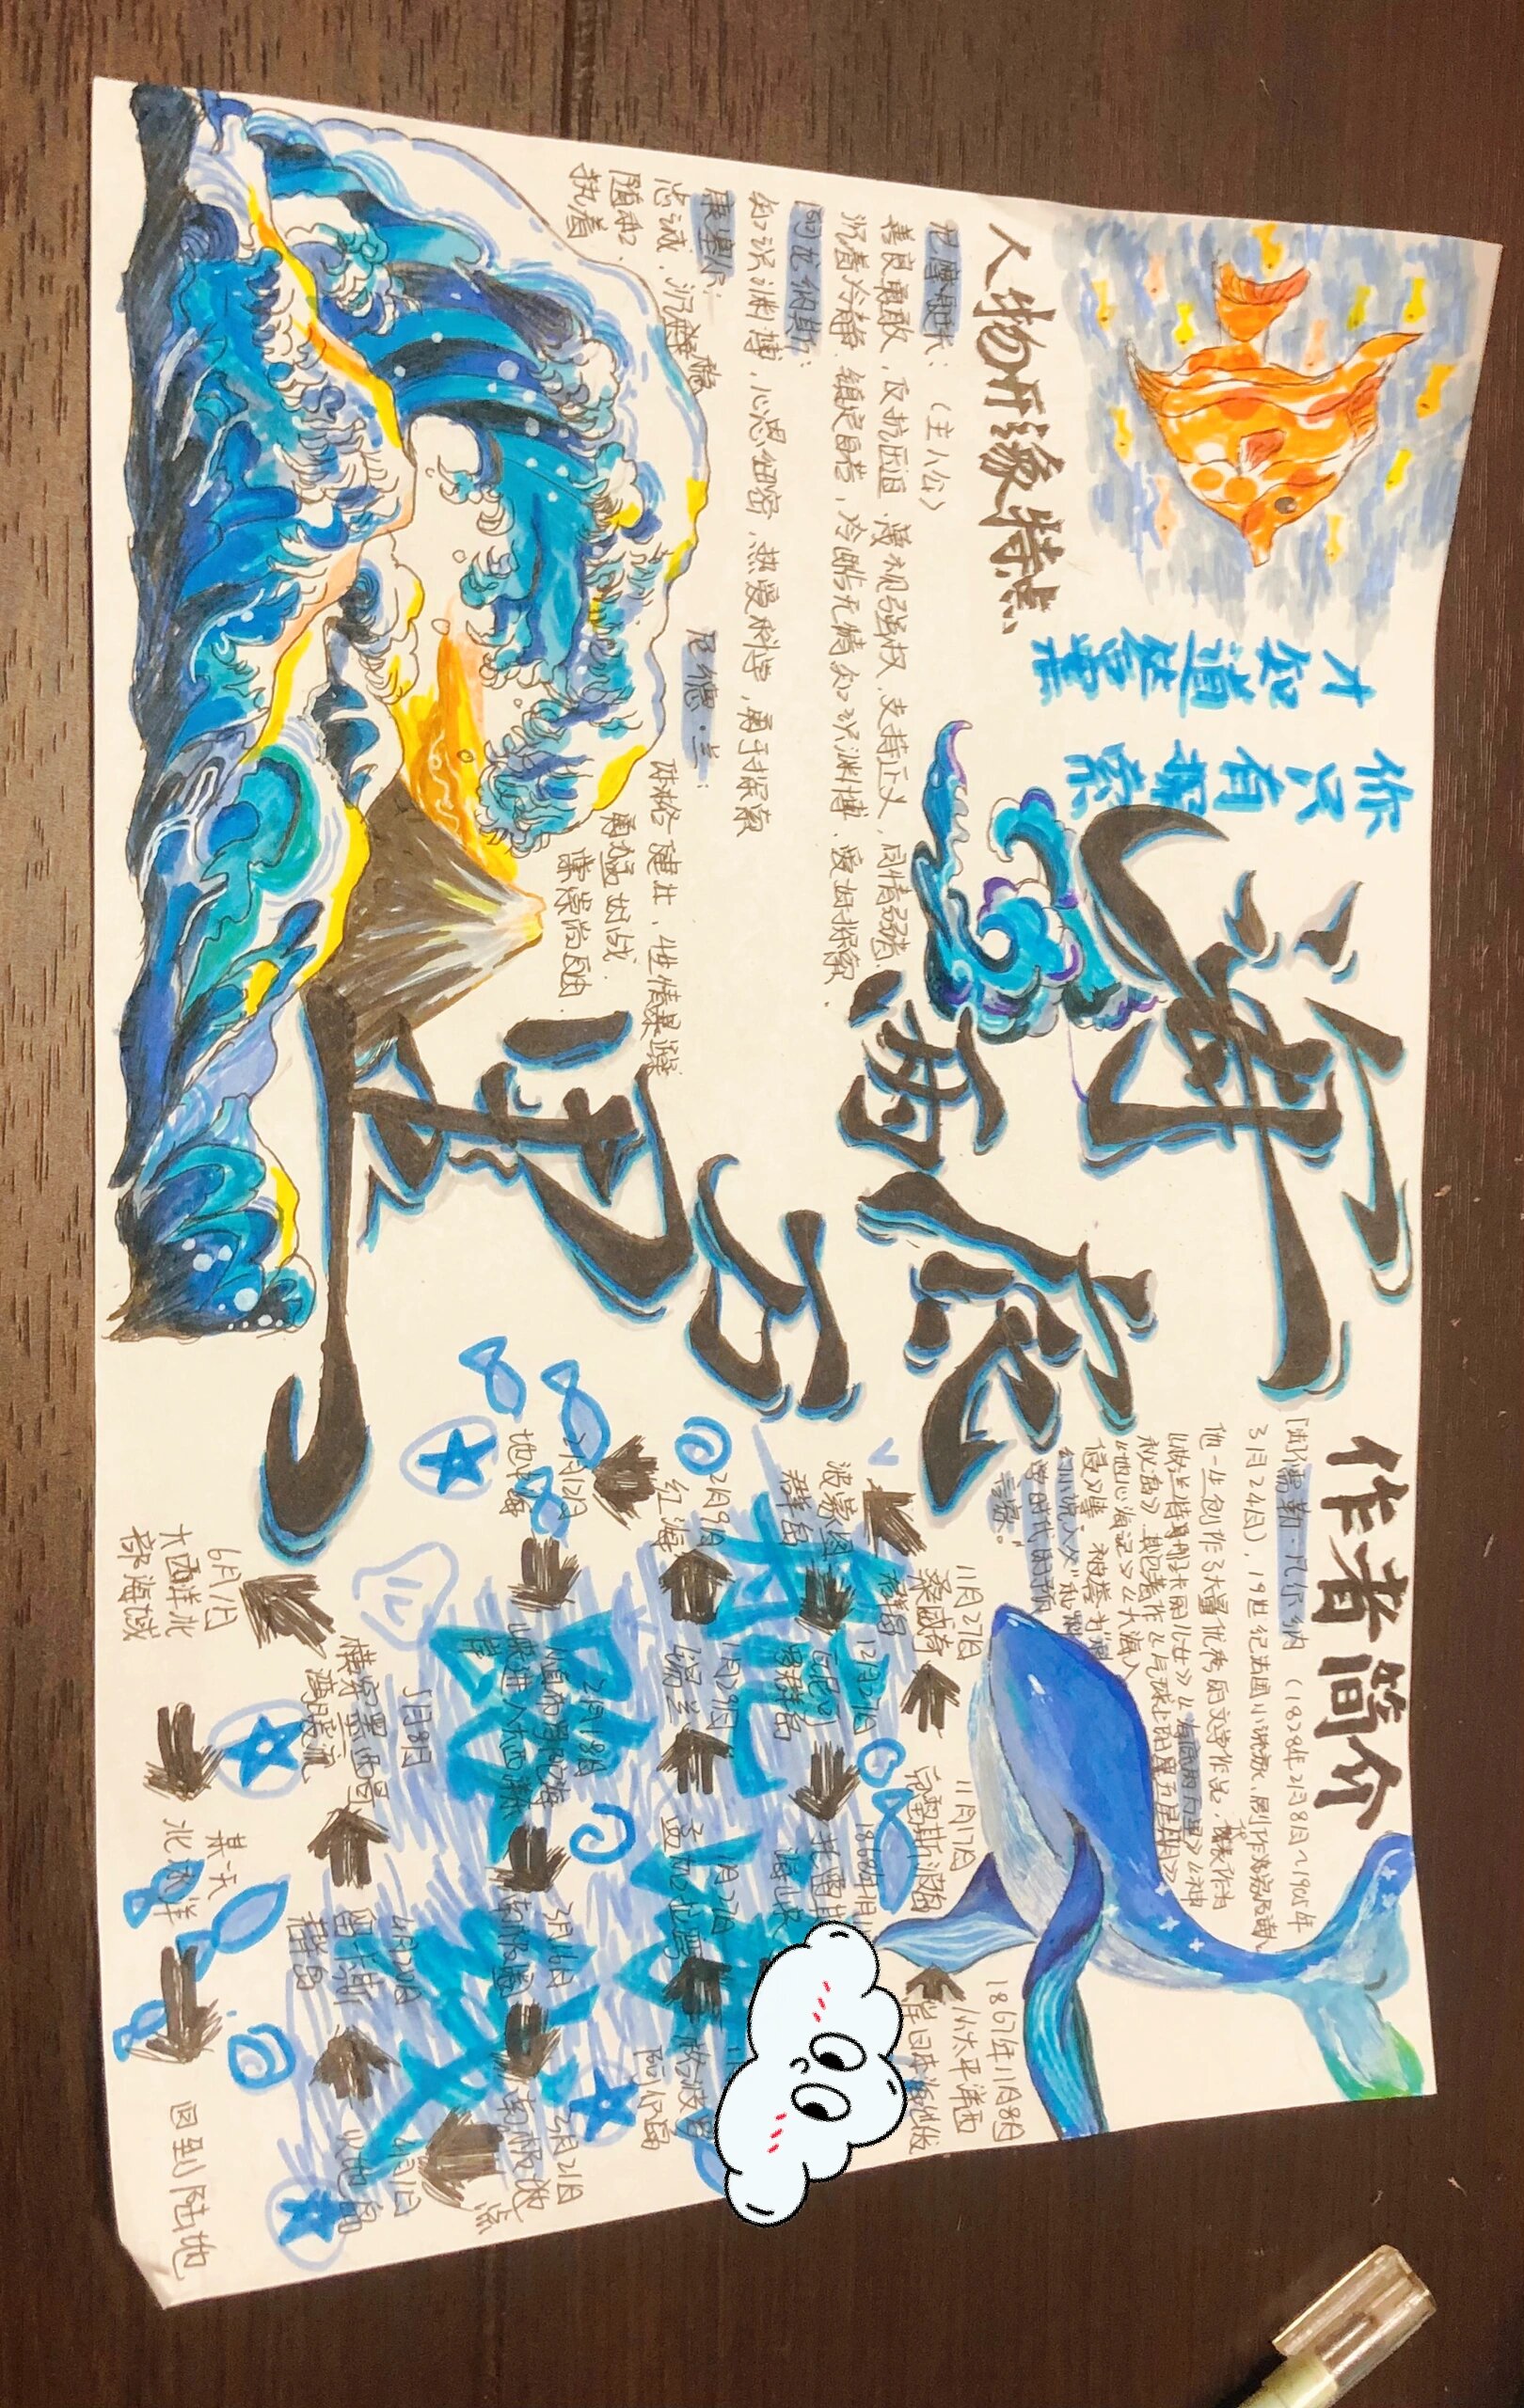 海底两万里
你只有探索
才知道答案
人物形象特点
尼摩船长：（主人公）
善良勇敢，反抗压迫，蔑视强权，支持正义，同情弱者，
沉着冷静，镇定自若，冷酷无情，知识渊博，爱好探索．
阿龙纳斯：
知识渊博，心思细密，热爱科学，勇于探索
康塞尔：
忠诚，沉稳
随和．
执着
尼德·兰：
体格健壮，性情暴躁
勇猛好战
崇尚自由．
作者简介
儒勒·凡尔纳（1828年2月8日～1905年
3月24日），19世纪法国小说家、剧作家及诗人
他一生创作了大量优秀的文学作品，代表作为
《格兰特船长的儿女》《海底两万里》《神
秘岛》
幻小说之父
1867年11月8日
从太平洋西
日本海出发
11月17日
克雷斯波岛
11月27日
桑威奇
群岛
波莫图
群岛
12月
瓦尼可
罗群岛
1868年1月
托雷斯
海峡
1月27日
孟加拉湾
1月29日
锡兰
2月9日
红海
2月12日
地中海
2月18日
直布罗陀海
峡进入大西洋
3月16日
南极圈
3月21日
南极地
点
火地岛
5月8日
横穿墨西哥
湾暖流
6月1日
大西洋北
部海域
某一天
北冰洋
回到陆地